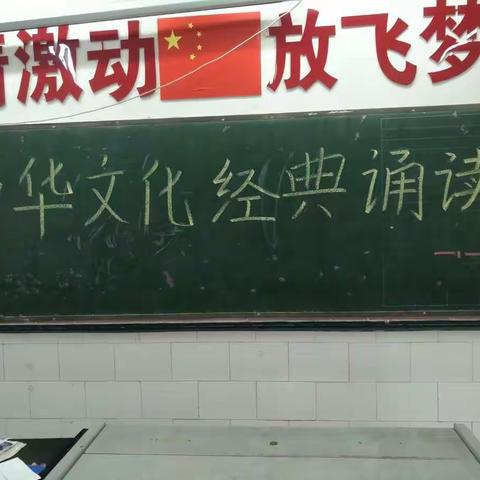 激动 放飞梦
华文化经典诵读